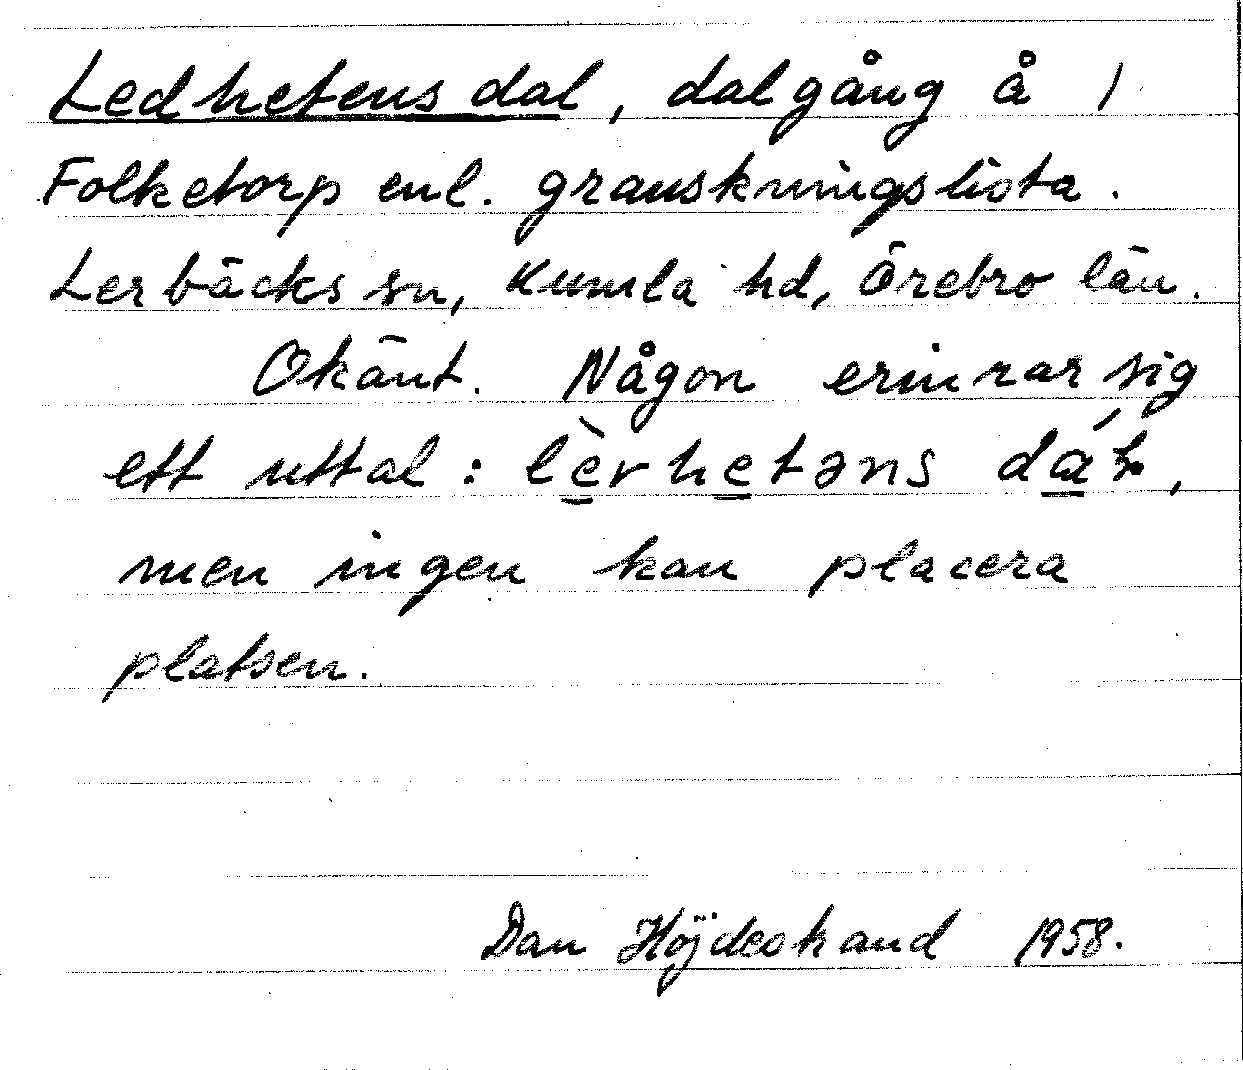 Ledhetens dal, dalgång å 1
Folketorp enl. granskningslista.
Lerbäcks sn, Kumla hd, Örebro län.
Okänt. Någon erinrar sig
ett uttal: lèvhetəns
men ingen kan placera
platsen.
Dan Höjdestrand 1958.